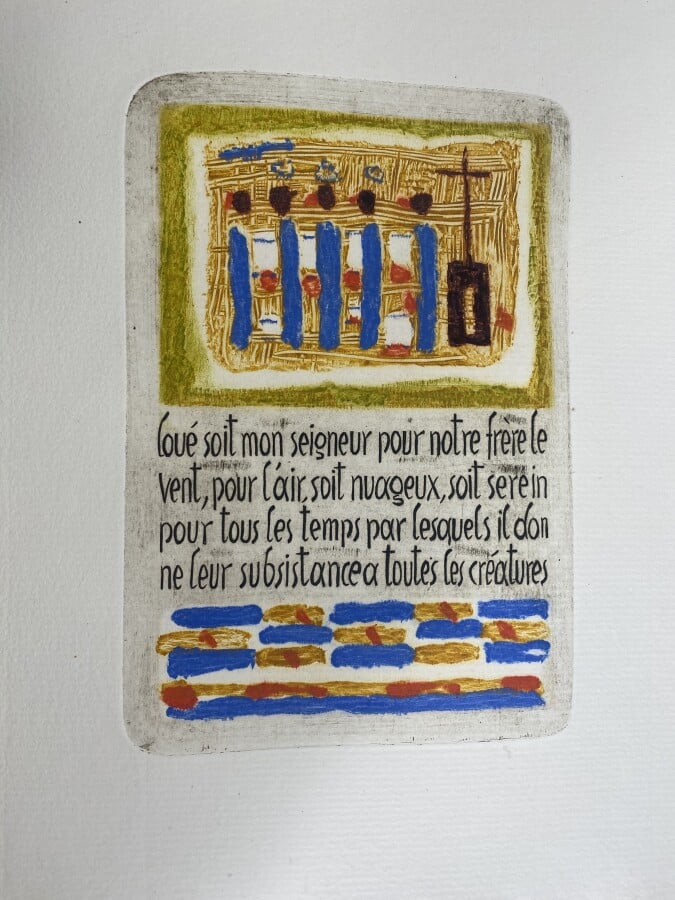 loué soit mon seigneur pour notre frère le
vent, pour l'áir, soit nuageux, soit serein
pour tous les temps par lesquels il don
ne leur subsistance a toutes les créatures